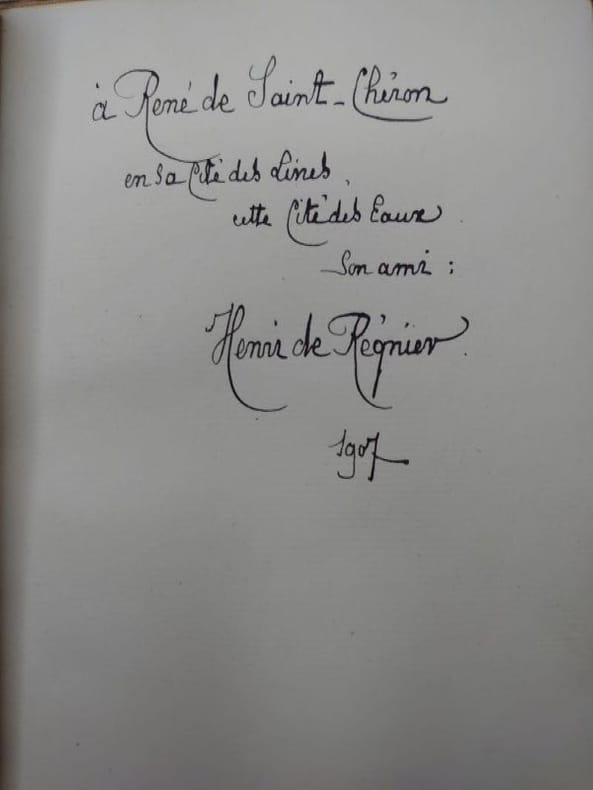 à René de Saint-Chéron
en sa Cité des Livres,
cette Cité des Eaux.
Son ami :
Henri de Régnier.
1907